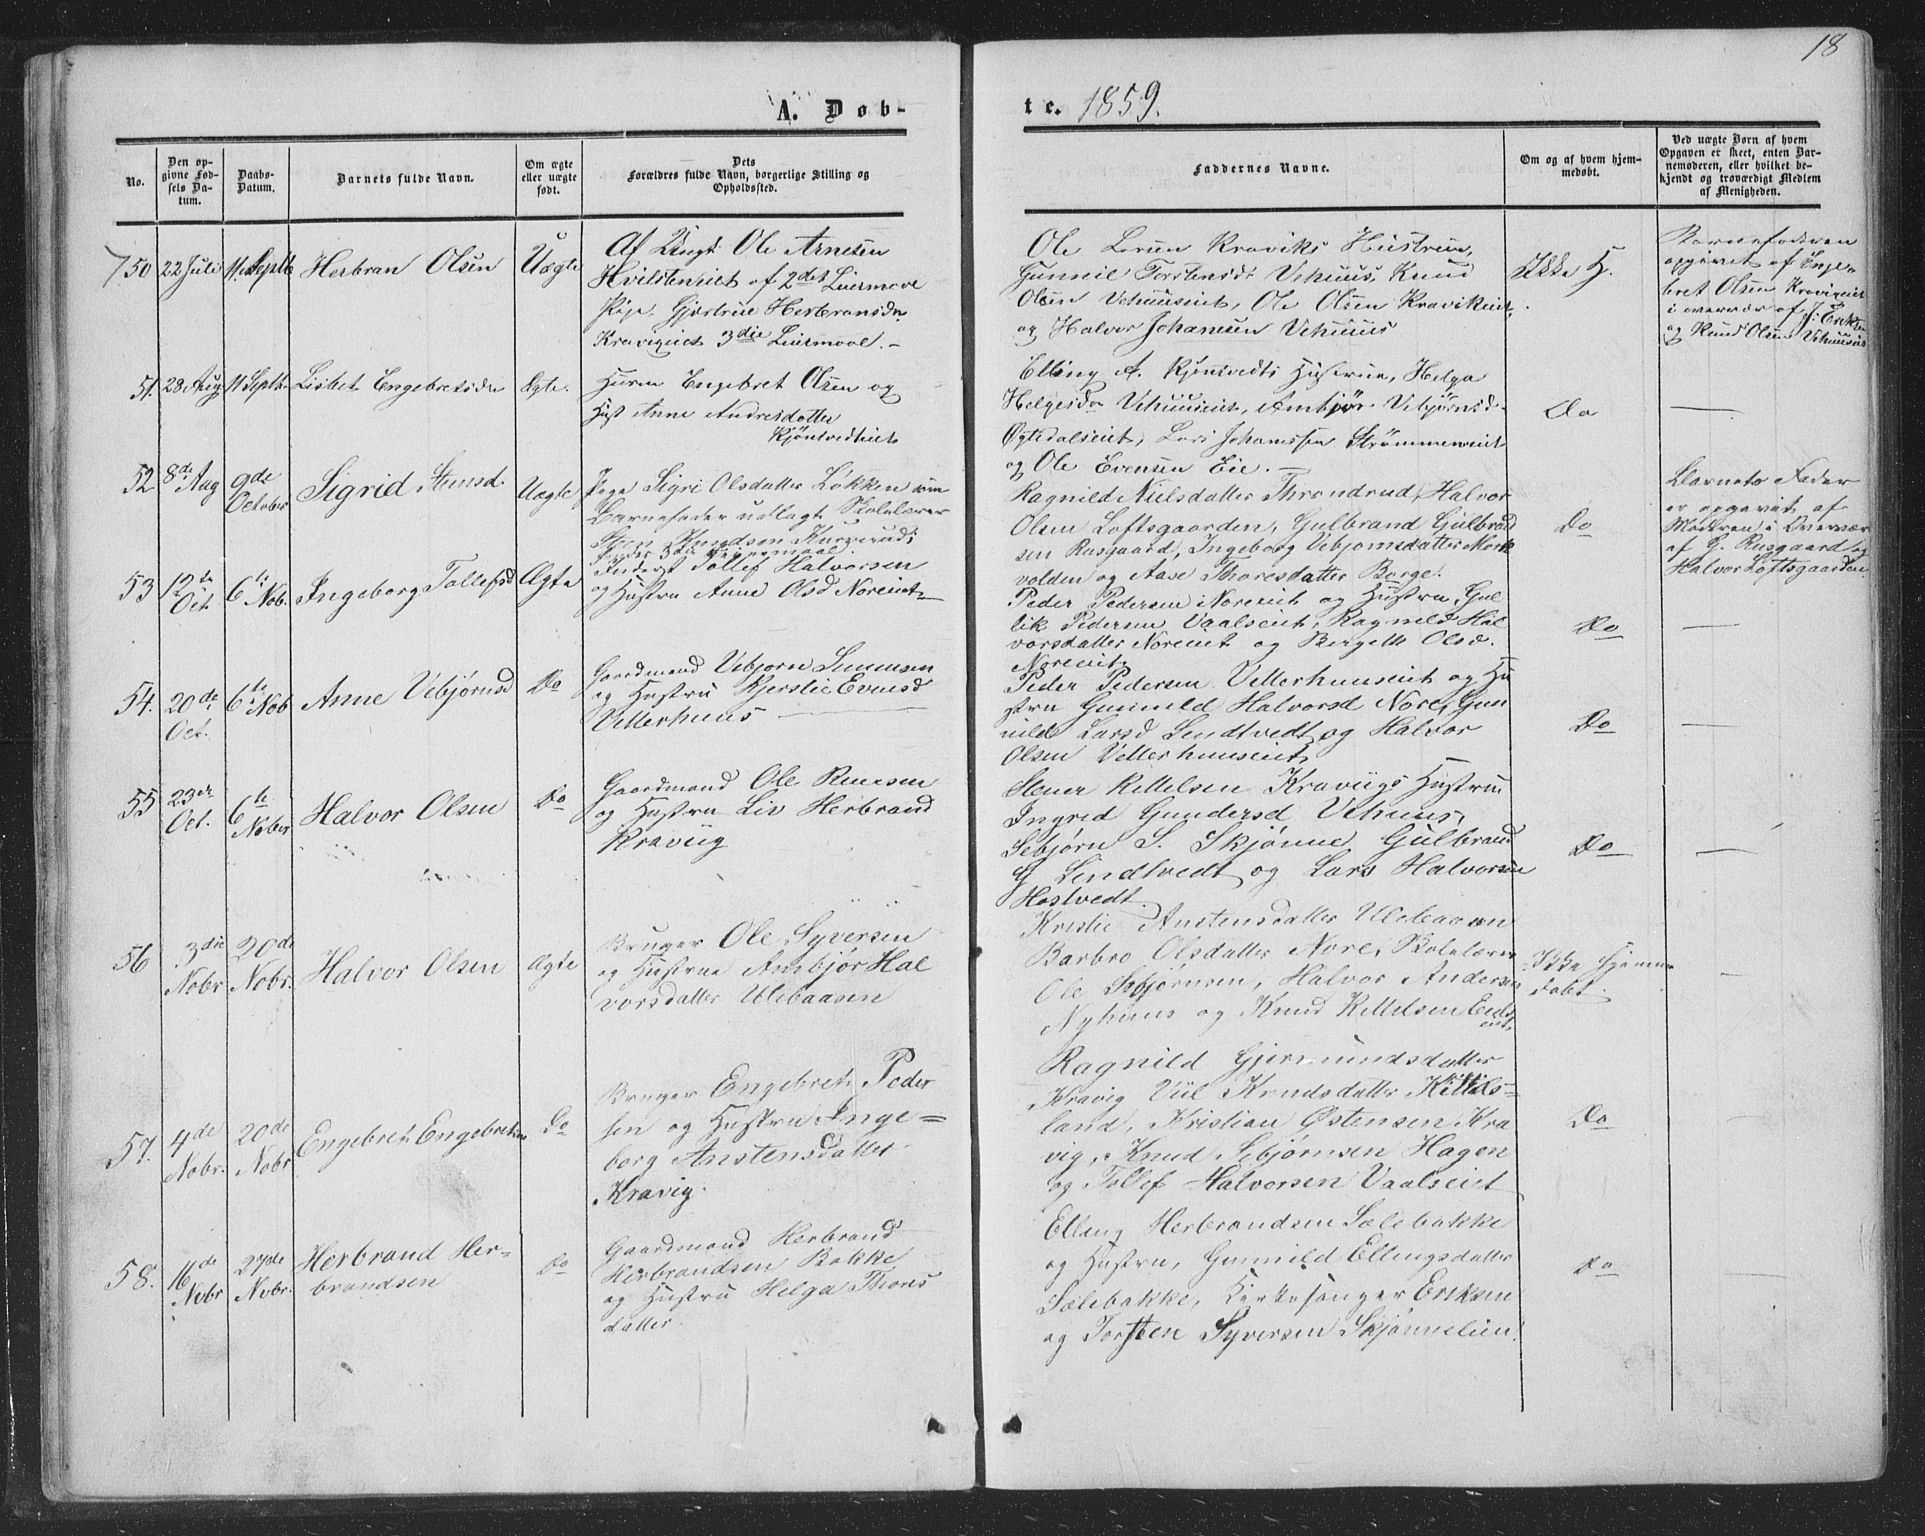 18
A. Døb-
te. 1859.
No.
Den op-
givne Fød-
sels Da-
tum.
Daabs-
Datum.
Barnets fulde Navn.
Om ægte
eller uægte
født.
Dets
Forældres fulde Navn, borgerlige Stilling og
Opholdssted.
Faddernes Navne.
Om og af hvem hjem-
medøbt.
Ved uægte Børn af hvem
Opgaven er skeet, enten Bar-
nemoderen, eller hvilket be-
kjendt og troværdigt Medlem
af Menigheden.
50 22 Juli 11 Septb Herbran Olsen Uægte
Af Ungk. Ole Arnesen
Hvilsteneiet af 2det Leiermaal
Pige. Gjertrue Herbransdr
Kravigeiet 3die Leiermaal. -
Ole Kraviks Hustrue,
Gunnil Torstensdr Vehuus, Knud
Olsen Vehuuseiet, Ole Olsen Kravikeiet
og Halvor Johansen Vehuus
Ikke H.
Barnefaderen
opgivet af Enge-
bret Olsen Kravigeiet
i overvær af J: Eriksen
og Knud Olsen Vehuuseiet
51. 28 Aug 11 Septb. Lisbet Engebretsdr Ægte.
Huusm Engebret Olsen og
Hust Anne Andresdatter
Kjønsvedteiet
Elling A. Kjønsvedts Hustrue, Helga
Helgesdr Vehuuseiet, Ambjør Vebjørnsd.
Øgtedalseiet, Lars Johannssen Strømmeneiet
og Ole Evensen Eie. -
Do
52 8de Aug 9de October Sigrid Steensd. Uægte
Pige Sigri Olsdatter Løkken som
Barnefader udlagt Skolelærer
Sten Knudsen
Ragnild Nielsdatter Throndrud, Halvor
Olsen Loftsgaarden, Gulbrand Gulbrand
sen Rusgaard, Ingeborg Vebjørnsdatter Mork
volden og Aase Thoresdatter Borge.
Do
Barnets Fader
er opgivet af
Moderen i Overvær
af G. Rusgaard og
Halvor Loftsgaarden.
53 12te Oct. 6te Nob. Ingeborg Tollefsd Ægte
Inderst Tollef Halvorsen
og Hustru Anne Olsd Noreeiet
Peder Pedersen Noreeiet og Hustru, Gul
lik Pedersen Vaalseiet, Ragnild Hal
vorsdatter Noreeiet og Bergitte Olsd.
Noreeiet.
Do
54. 20de Oct. 6te Nob Anne Vebjørnsd Do
Gaardmand Vebjørn Simensen
og Hustru Kjerstie Evensd
Vetterhuus
Peder Pedersen Vetterhuuseiet og Hu
stru Gunnild Halvorsd Nore, Gun
nild Larsd Lindtvedt og Halvor
Olsen Vetterhuuseiet
Do
55 23de Oct. 6te Nober Halvor Olsen Do
Gaardmand Ole Reiersen
og Hustru Liv Herbrand
Kraviig
Stener Kittelsen Kraviigs Hustru
Ingrid Gundersd Vehuus,
Sebjørn S. Skjønne Gulbrand
G Lindtvedt og Lars Halvorsen
Hostvedt.
Do
56 3die Nobr 20de Nobr. Halvor Olsen Ægte
Bruger Ole Syversen
og Hustrue Ambjør Hal
vorsdatter Ulebaasen
Kristie Anstensdatter Ulebaasen
Barbro Olsdatter Nore, Skolelærer
Ole Sebjørnsen, Halvor Andersen
Nyhuus og Knud Kittelsen Eids
eiet
Ikke hjemme
døbt.
57. 4de Nobr. 20de Nobr Engebret Engebretsen Do
Bruger Engebret Peder
sen og Hustru Inge=
borg Anstensdatter
Kravig.
Ragnild Gjermundsdatter
Kravig Viil Knudsdatter Kittils=
land, Kristian Østensen Kra
vig, Knud Sebjørnsen Hagen
og Tollef Halvorsen Vaalseiet
Do
58. 16de Nobr 27de Nobr. Herbrand Her=
brandsen Do
Gaardmand Herbrand
Herbrandsen Bakke
og Hustru Helga Thores
datter
Elling Herbrandsen Sølebakke
og Hustru, Gunnild Ellingsdatter
Sølebakke, Kirkesanger Eriksen
og Torsten Syversen Skjønnelien.
Do